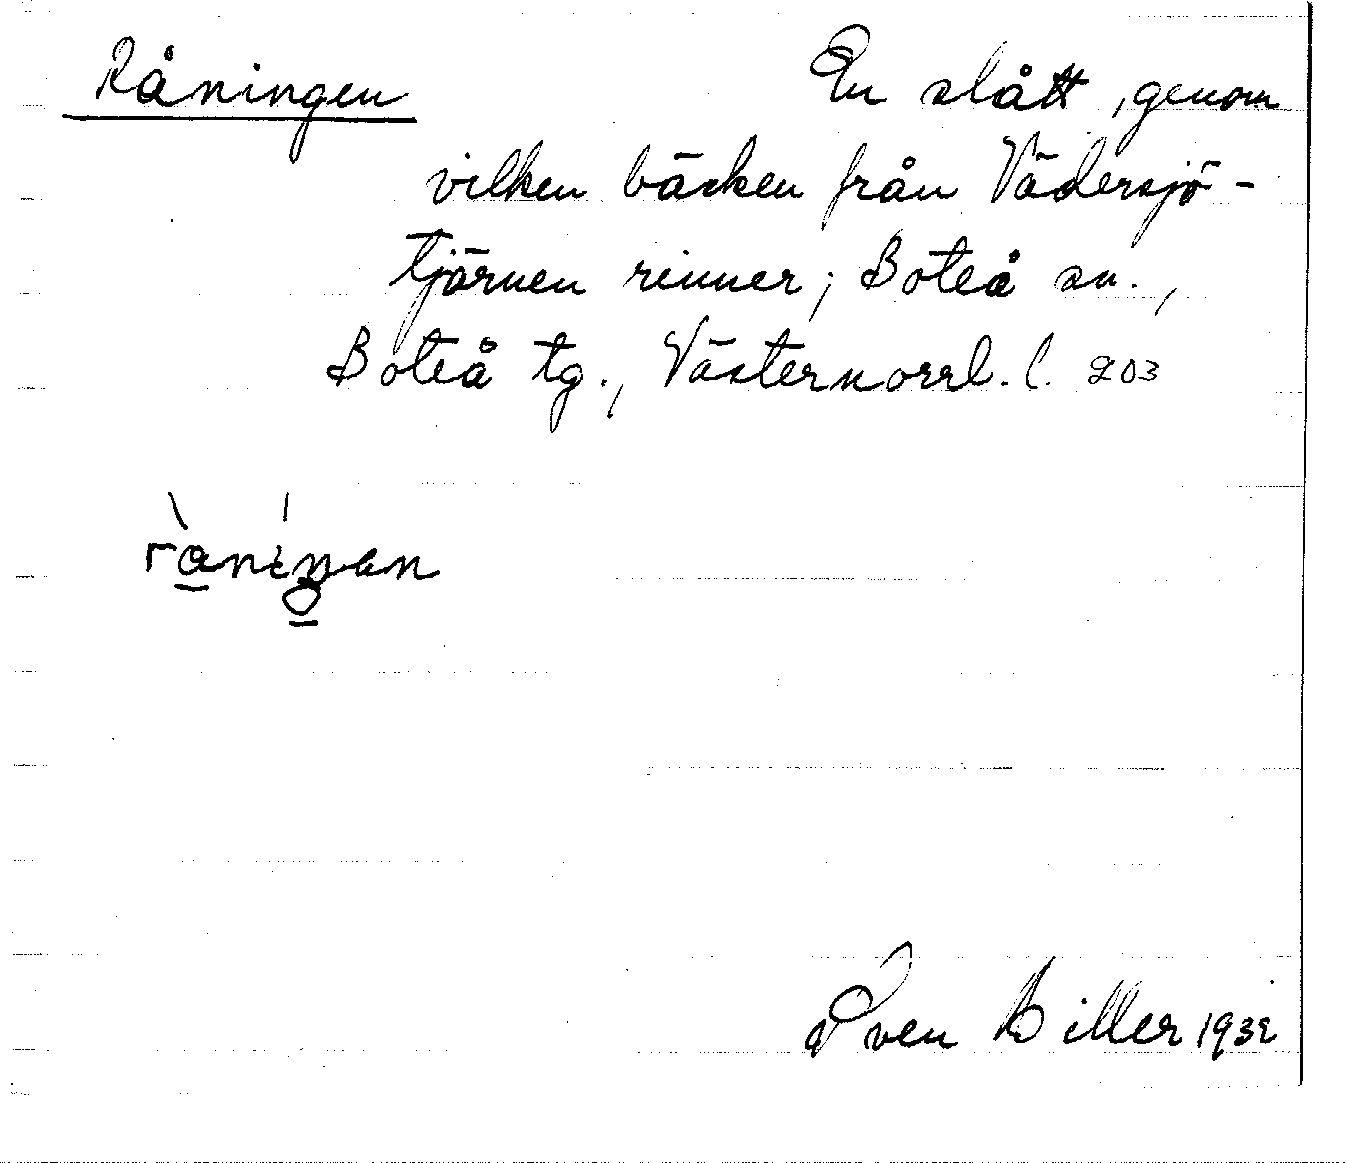 Råningen
En slått, genom
vilken bäcken från Vädersjö-
tjärnen rinner; Boteå sn.,
Boteå tg., Västernorrl. l. 203
Sven Biller 1932